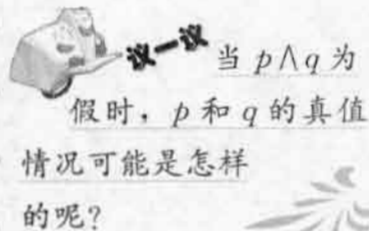 议一议 当 p∧q 为
假时，p 和 q 的真值
情况可能是怎样
的呢？